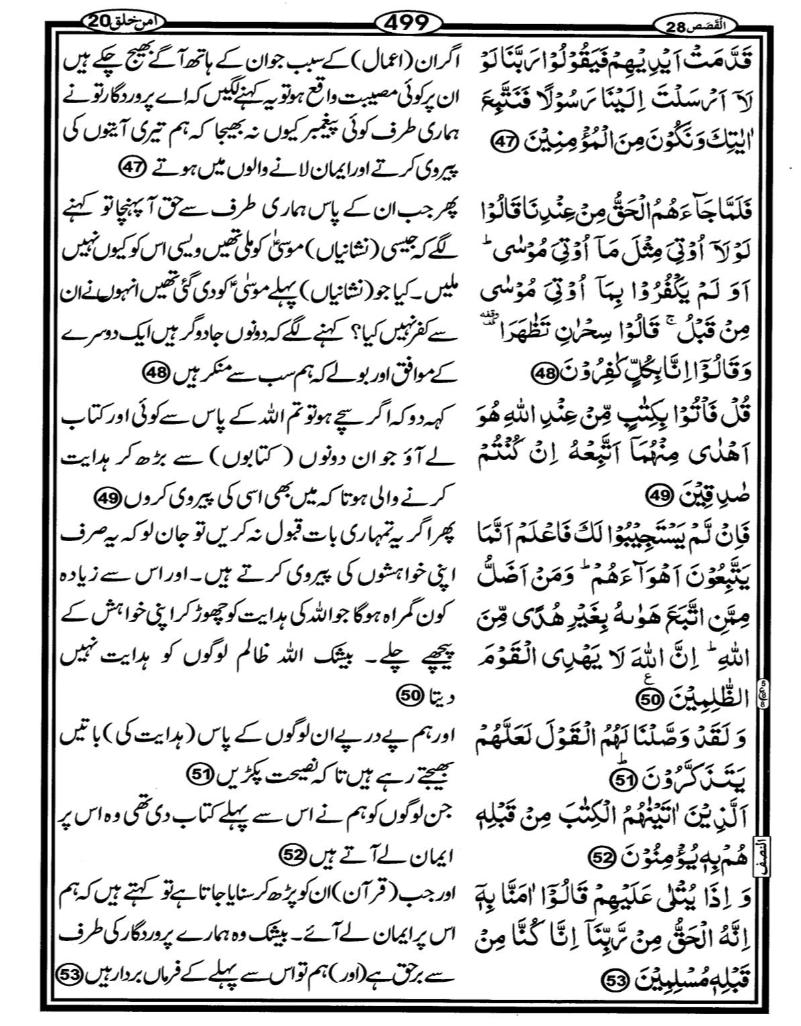 القصص 28
499
امن خلق 20
قَدَّمَتْ اَيْدِيْهِمْ فَيَقُوْلُوْا رَبَّنَا لَوْ
لَاۤ اَرْسَلْتَ اِلَيْنَا رَسُوْلًا فَنَتَّبِعَ
اٰيٰتِكَ وَنَكُوْنَ مِنَ الْمُؤْمِنِيْنَ 47
فَلَمَّا جَآءَهُمُ الْحَقُّ مِنْ عِنْدِنَا قَالُوْا
لَوْلَاۤ اُوْتِيَ مِثْلَ مَاۤ اُوْتِيَ مُوْسٰى ؕ
اَوَ لَمْ يَكْفُرُوْا بِمَاۤ اُوْتِيَ مُوْسٰى
مِنْ قَبْلُ ۚ قَالُوْا سِحْرٰنِ تَظٰهَرَا ۥوقفة
وَقَالُوْۤا اِنَّا بِكُلٍّ كٰفِرُوْنَ 48
قُلْ فَاْتُوْا بِكِتٰبٍ مِّنْ عِنْدِ اللهِ هُوَ
اَهْدٰى مِنْهُمَاۤ اَتَّبِعْهُ اِنْ كُنْتُمْ
صٰدِقِيْنَ 49
فَاِنْ لَّمْ يَسْتَجِيْبُوْا لَكَ فَاعْلَمْ اَنَّمَا
يَتَّبِعُوْنَ اَهْوَآءَهُمْ ؕ وَمَنْ اَضَلُّ
مِمَّنِ اتَّبَعَ هَوٰىهُ بِغَيْرِ هُدًى مِّنَ
اللهِ ؕ اِنَّ اللهَ لَا يَهْدِى الْقَوْمَ
الظّٰلِمِيْنَ 50 ع
وَ لَقَدْ وَصَّلْنَا لَهُمُ الْقَوْلَ لَعَلَّهُمْ
يَتَذَكَّرُوْنَ 51 ؕ
اَلَّذِيْنَ اٰتَيْنٰهُمُ الْكِتٰبَ مِنْ قَبْلِهٖ
هُمْ بِهٖ يُؤْمِنُوْنَ 52
وَ اِذَا يُتْلٰى عَلَيْهِمْ قَالُوْۤا اٰمَنَّا بِهٖۤ
اِنَّهُ الْحَقُّ مِنْ رَّبِّنَاۤ اِنَّا كُنَّا مِنْ
قَبْلِهٖ مُسْلِمِيْنَ 53
اگر ان (اعمال) کے سبب جو ان کے ہاتھ آگے بھیج چکے ہیں
ان پر کوئی مصیبت واقع ہو تو یہ کہنے لگیں کہ اے پروردگار تو نے
ہماری طرف کوئی پیغمبر کیوں نہ بھیجا کہ ہم تیری آیتوں کی
پیروی کرتے اور ایمان لانے والوں میں ہوتے 47
پھر جب ان کے پاس ہماری طرف سے حق آ پہنچا تو کہنے
لگے کہ جیسی (نشانیاں) موسیٰؑ کو ملی تھیں ویسی اس کو کیوں نہیں
ملیں۔ کیا جو (نشانیاں) پہلے موسیٰؑ کو دی گئی تھیں انہوں نے ان
سے کفر نہیں کیا؟ کہنے لگے کہ دونوں جادوگر ہیں ایک دوسرے
کے موافق اور بولے کہ ہم سب سے منکر ہیں 48
کہہ دو کہ اگر سچے ہو تو تم اللہ کے پاس سے کوئی اور کتاب
لے آؤ جو ان دونوں (کتابوں) سے بڑھ کر ہدایت
کرنے والی ہو تا کہ میں بھی اسی کی پیروی کروں 49
پھر اگر یہ تمہاری بات قبول نہ کریں تو جان لو کہ یہ صرف
اپنی خواہشوں کی پیروی کرتے ہیں۔ اور اس سے زیادہ
کون گمراہ ہوگا جو اللہ کی ہدایت کو چھوڑ کر اپنی خواہش کے
پیچھے چلے۔ بیشک اللہ ظالم لوگوں کو ہدایت نہیں
دیتا 50
اور ہم پے در پے ان لوگوں کے پاس (ہدایت کی) باتیں
بھیجتے رہے ہیں تا کہ نصیحت پکڑیں 51
جن لوگوں کو ہم نے اس سے پہلے کتاب دی تھی وہ اس پر
ایمان لے آتے ہیں 52
اور جب (قرآن) ان کو پڑھ کر سنایا جاتا ہے تو کہتے ہیں کہ ہم
اس پر ایمان لے آئے۔ بیشک وہ ہمارے پروردگار کی طرف
سے برحق ہے (اور) ہم تو اس سے پہلے کے فرماں بردار ہیں 53
النصف